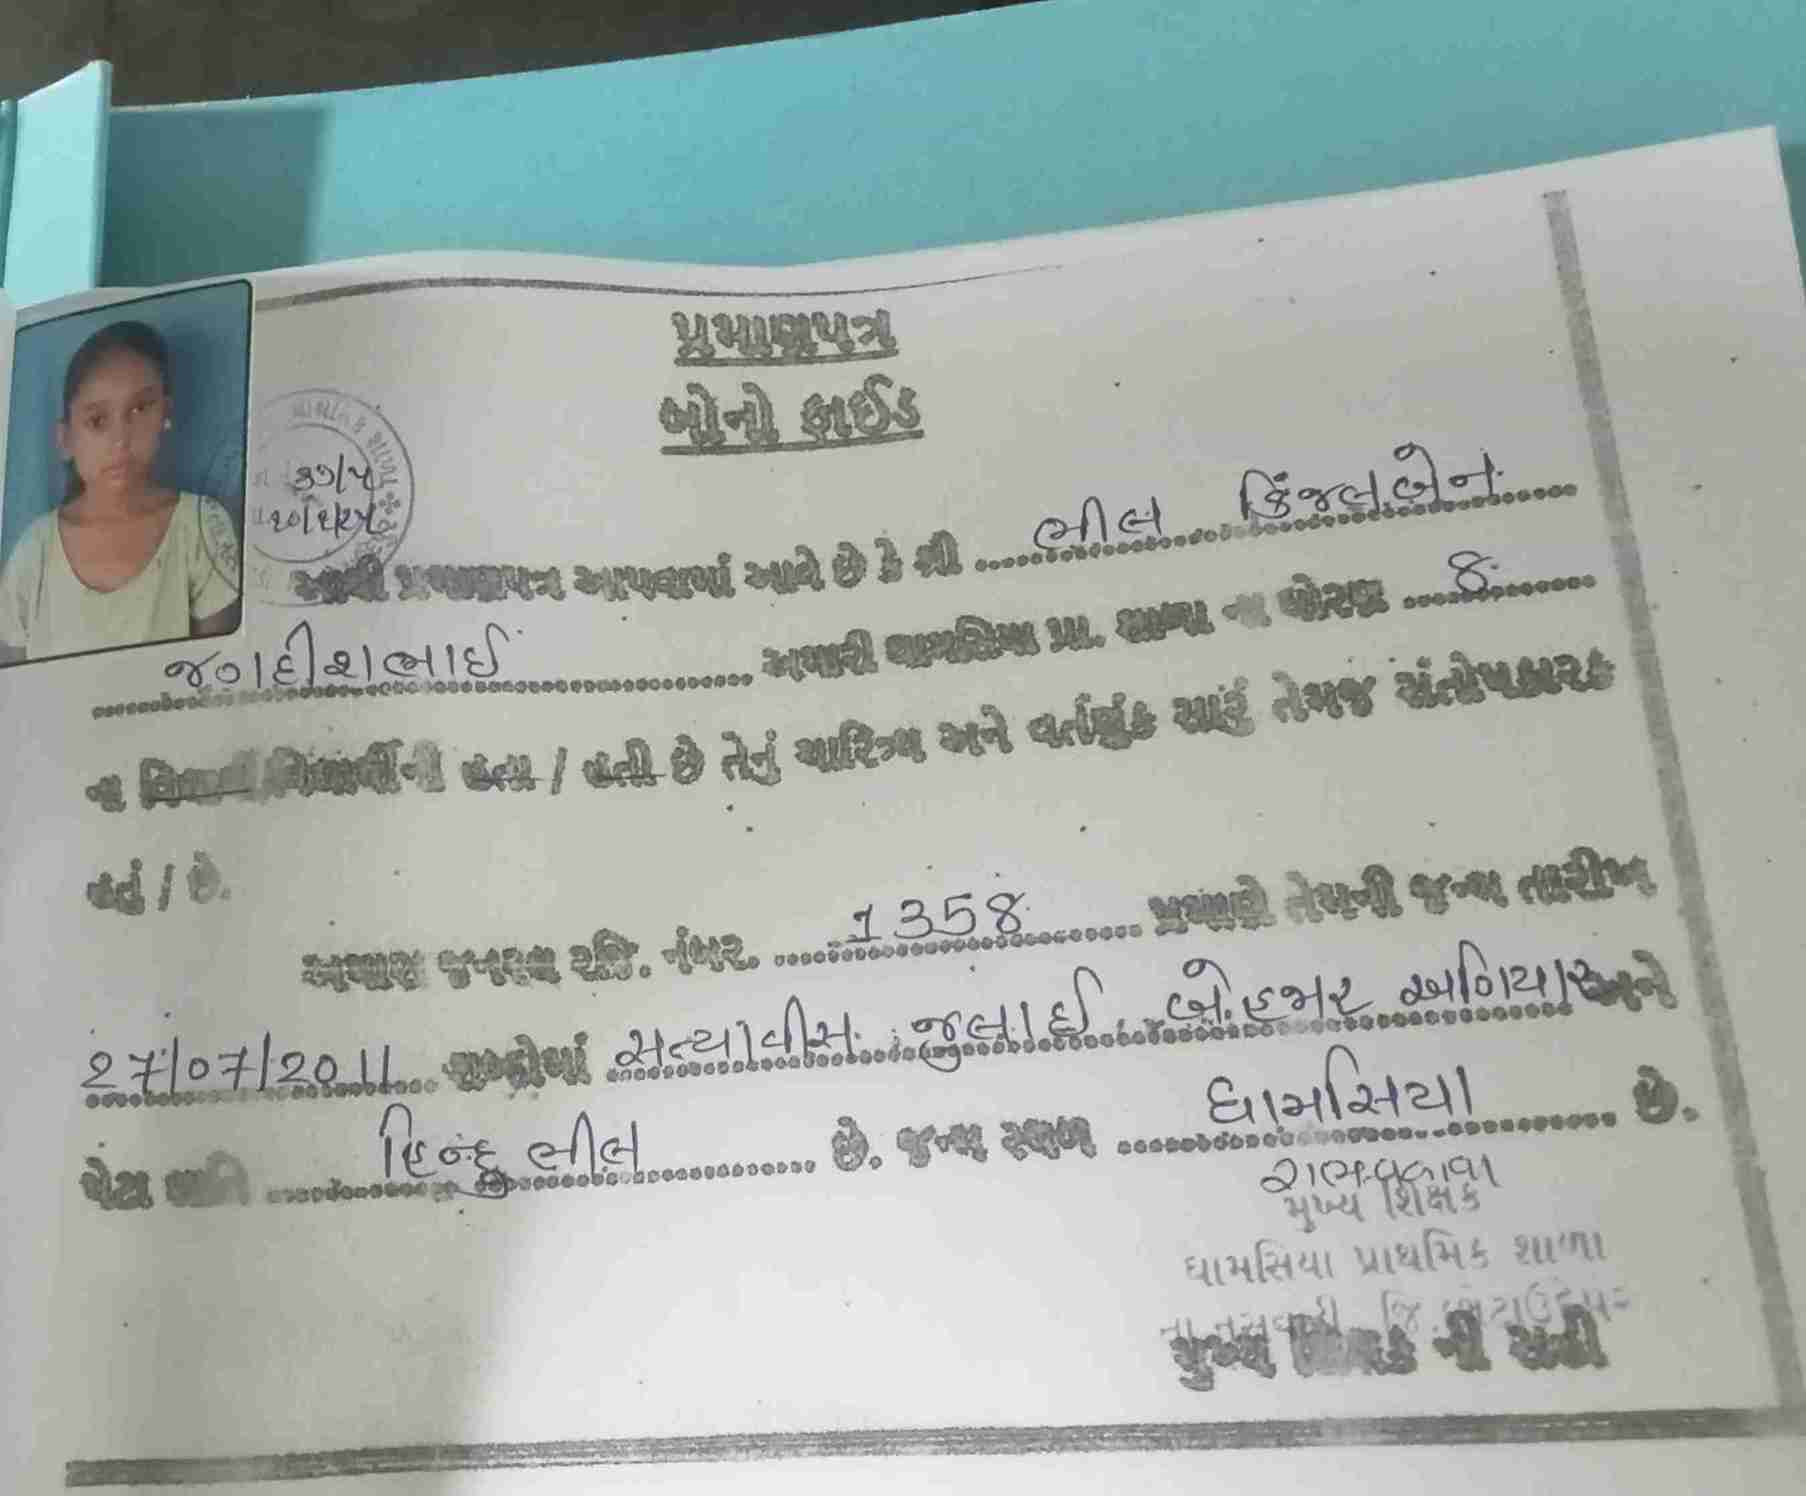 પ્રમાણપત્ર
બોનો ફાઈડ
પ્રાથમિક શાળા
આથી પ્રમાણપત્ર આપવામાં આવે છે કે શ્રી ભીલ કિંજલબેન
જગદીશભાઈ અમારી ધામસિયા પ્રા. શાળા ના ધોરણ 8
ના વિદ્યાર્થી વિદ્યાર્થીની હતા / હતી છે તેનું ચારિત્ર્ય અને વર્તણુંક સારું તેમજ સંતોષકારક
હતું / છે.
અત્રેના જનરલ રજિ. નંબર. 1358 પ્રમાણે તેમની જન્મ તારીખ
27/07/2011 શબ્દોમાં સત્યાવીસ જુલાઈ બે હજાર અગિયાર અને
પેટા જાતિ હિન્દુ ભીલ છે. જન્મ સ્થળ ધામસિયા છે.
મુખ્ય શિક્ષક
ધામસિયા પ્રાથમિક શાળા
તા.નસવાડી જિ.છોટાઉદેપુર
મુખ્ય શિક્ષક ની સહી